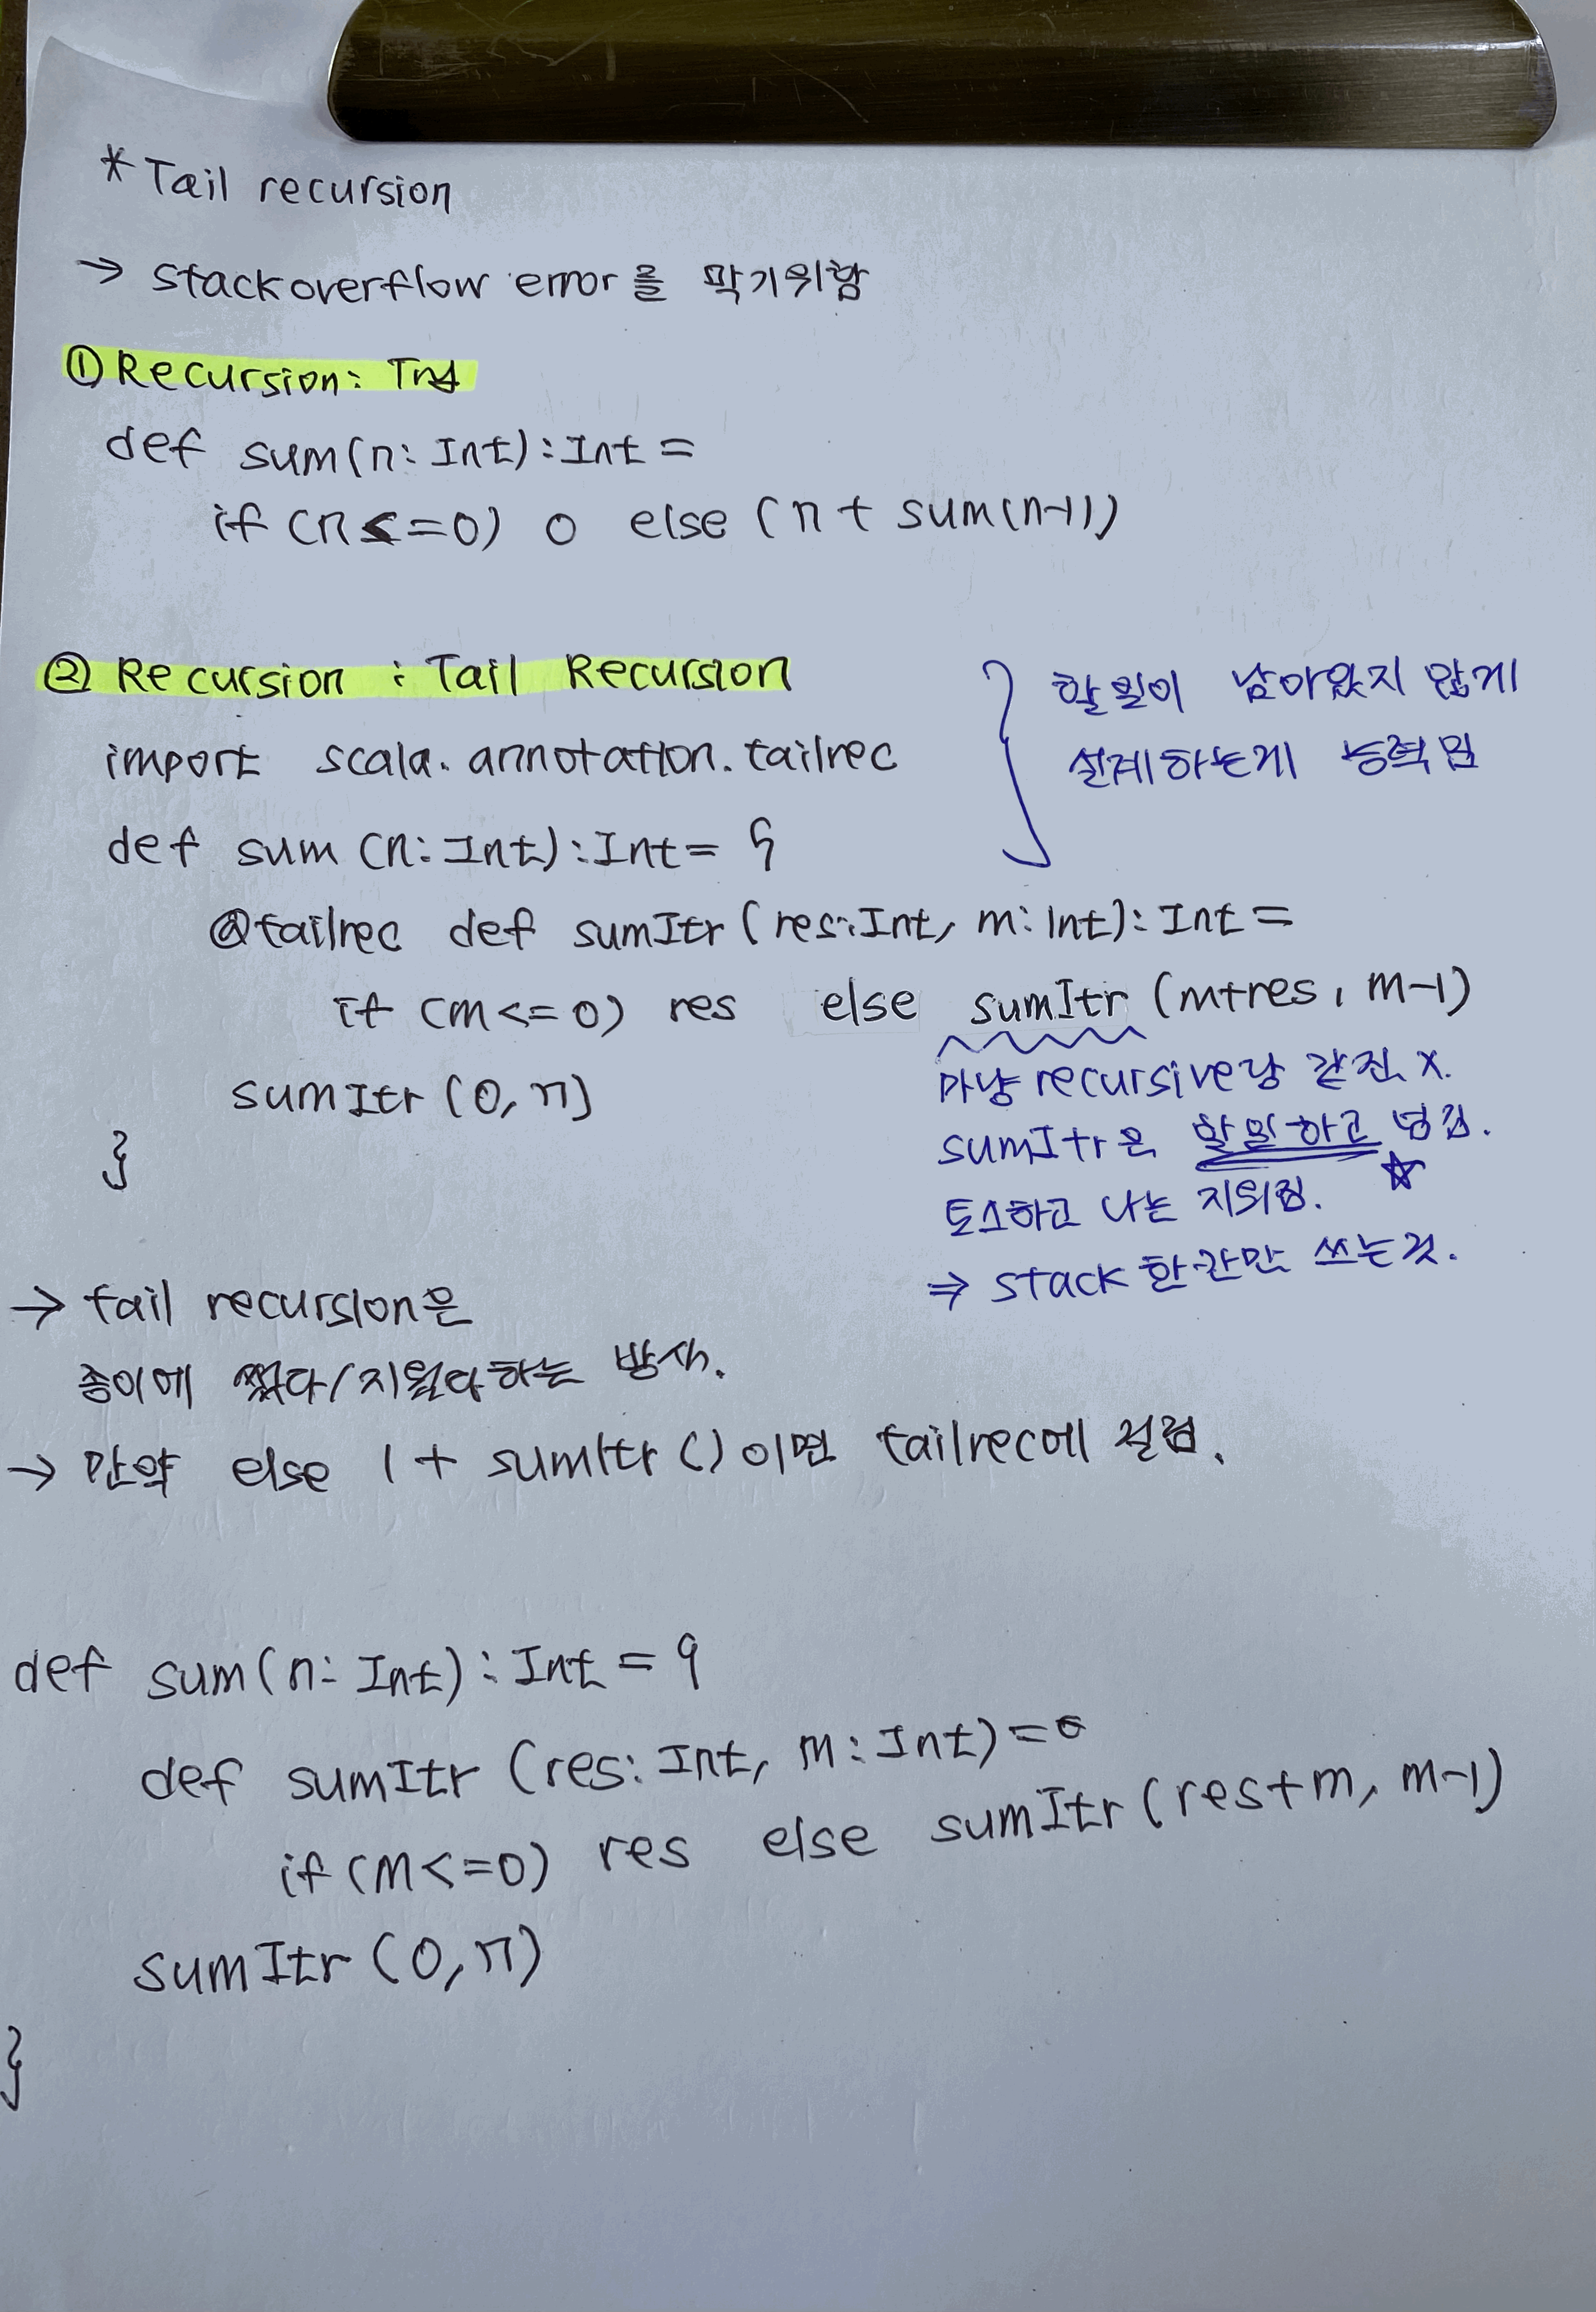 * Tail recursion
→ stackoverflow error을 막기위함
① Recursion: Try
def sum(n: Int): Int =
if (n <= 0) 0 else (n + sum(n-1))
② Recursion : Tail Recursion
import scala.annotation.tailrec
할일이 남아있지 않게
설계하는게 능력임
def sum (n: Int): Int = {
@tailrec def sumItr (res: Int, m: Int): Int =
if (m <= 0) res else sumItr (m+res, m-1)
sumItr (0, n)
}
마냥 recursive랑 같진 x.
sumItr은 할일하고 넘김. ☆
토스하고 나는 지워짐.
⇒ stack 한칸만 쓰는것.
→ tail recursion은
종이에 썼다/지웠다하는 방식.
→ 만약 else 1 + sumItr () 이면 tailrec에 걸림.
def sum(n: Int): Int = {
def sumItr (res: Int, m: Int) =
if (m <= 0) res else sumItr (res+m, m-1)
sumItr (0, n)
}